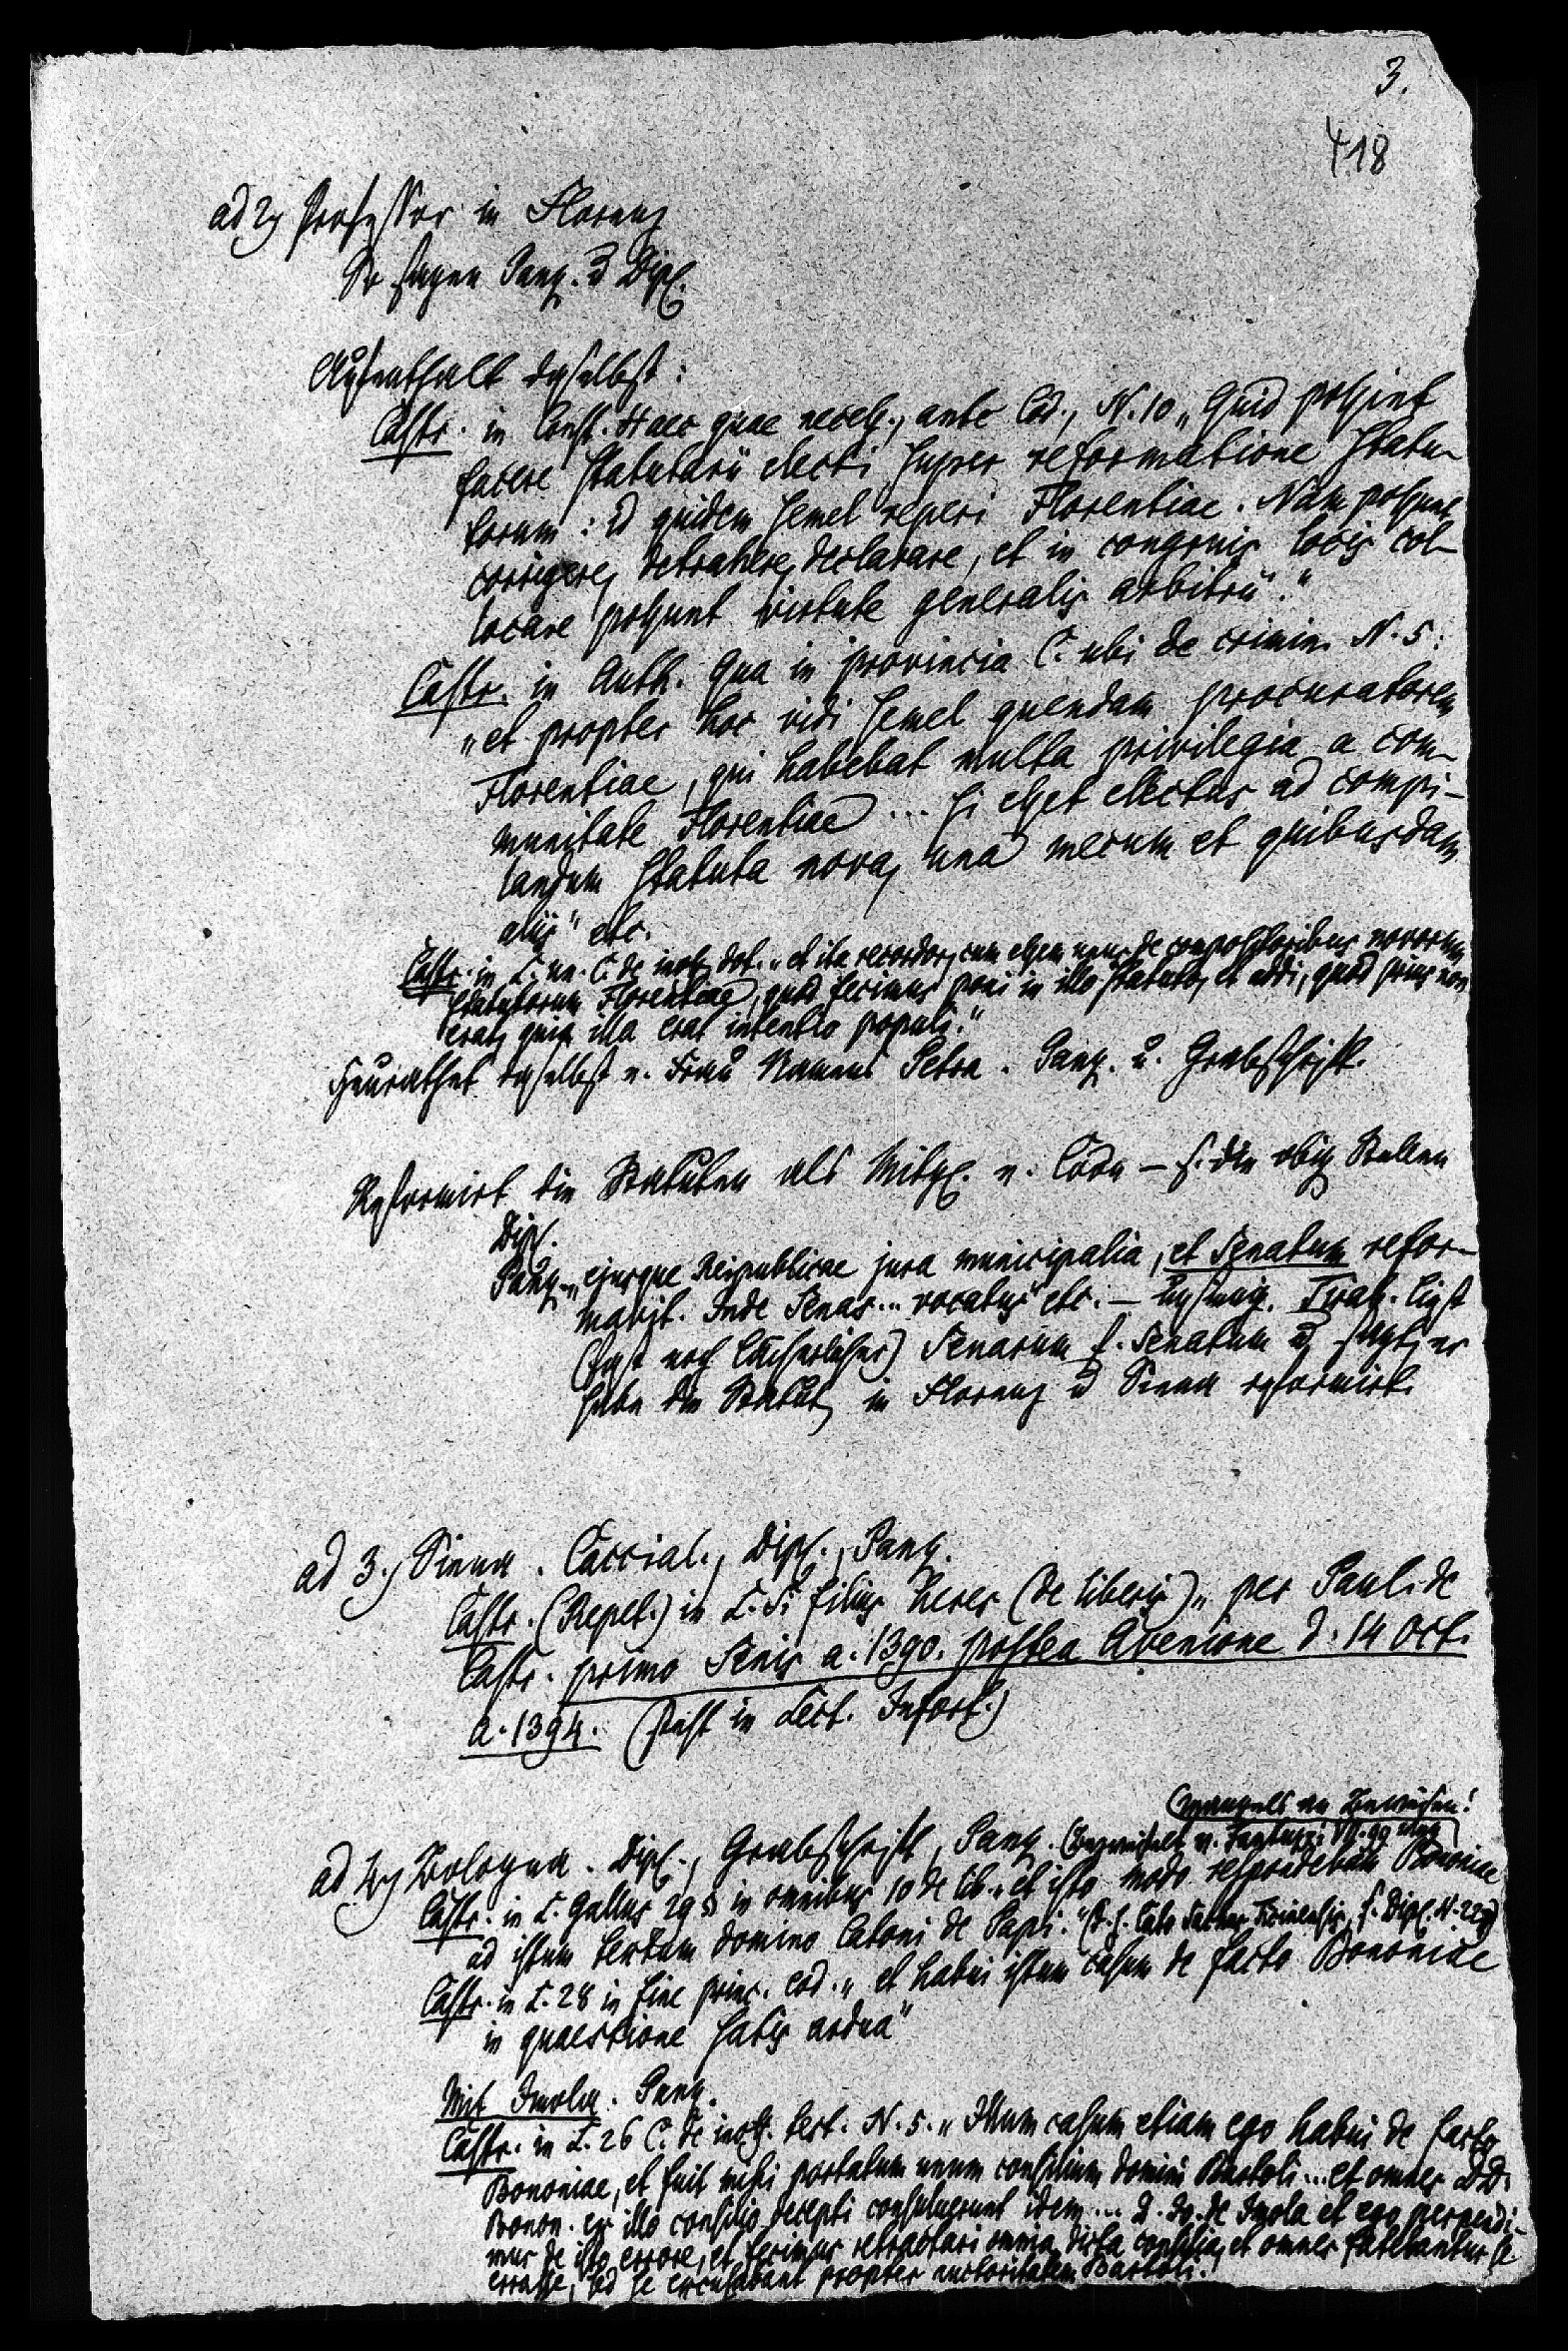 3.
418
ad 2, Professor in Florenz
So sagen Panz. u Dipl.
Aufenthalt daselbst:
Castr. in Const. Haec quae necess., ante Cod., N. 10 „Quid possint
facere statutarii electi super reformatione statu-
torum: id quidem semel reperi Florentiae. Nam possunt
corrigere, detrahere, declarare, et in congruis locis col-
locare possunt virtute generalis arbitrii“."
Castr. in Auth. Qua in provincia C. ubi de crimin. N. 5:
„et propter hoc vidi semel quendam procuratorem
Florentiae, qui habebat multa privilegia a com-
munitate Florentiae ... si esset electus ad compi-
landum statuta nova, una mecum et quibusdam
aliis“ etc.
Castr. in L. un. C. de inoff. dot. „et ita recordor, cum essem unus de compositoribus novorum
statutorum Florentiae, quod fecimus poni in illo statuto, et addi, quod prius non
erat, quia illa erat intentio populi."
Heurathet daselbst e. Frau Namens Petra. Panz. u. Grabschrift.
Reformirt die Statuten als Mitgl. e. Com — s. die obig Stellen
Dipl.
Panz. „ejusque Reipublicae jura municipalia, et Senatum refor-
mavit. Inde Senas ... vocatus“ etc. — Tirab. liest
(fast noch lächerlicher) Senarum f. Senatum u, sagt, er
habe die Statut, in Florenz u Siena reformirt.
ad 3., Siena. Caccial., Dipl., Panz.
Castr. (Repet.) in L. Si filius heres (de liberis) „per Paul. de
Castr. primo Senis a. 1390. postea Avenione d. 14 Oct.
a. 1394. (steht in Lect. Infort.)
ad 4, Bologna. Dipl., Grabschrift, Panz. (Bezweifelt v. Fantuzzi VII. 99 weg
mangels an Beweisen!
Castr. in L. Gallus 29 § in omnibus 10 de lib. „et isto modo respondebam Bononiae
ad istum textum domino Catoni de Papi." (d. h. Cato Saccus Ticinensis, s. Dipl. N. 229)
Castr. in L. 28 in fine princ. eod. „et habui istum casum de facto Bononiae
in quaestione satis ardua“
Mit Imola. Panz.
Castr. in L. 26 C. de inoff. test. N. 5. „Illum casum etiam ego habui de facto
Bononiae, et fuit mihi portatum unum consilium domini Bartoli ... et omnes DD.
Bonon. ex illo consilio decepti consuluerunt idem ... D. Jo. de Imola et ego perpendi-
mus de isto errore, et fecimus retractari omnia dicta consilia, et omnes fatebantur se
errasse, sed se excusabant propter auctoritatem Bartoli."